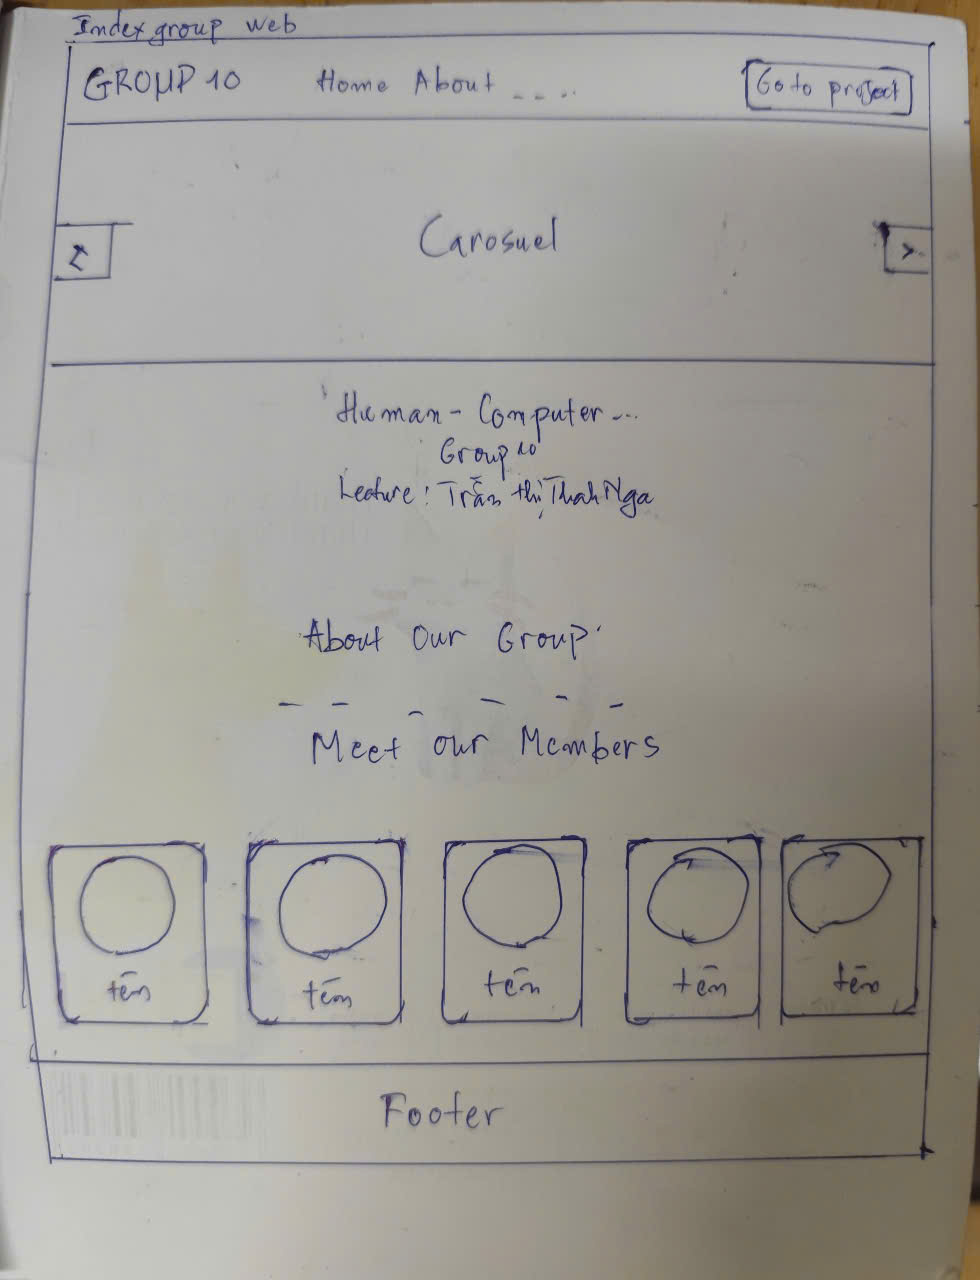 Index group web
GROUP 10 Home About _ _ . .
Go to project
Carosuel
<
>
Human - Computer...
Group 10
Lecture: Trần thị Thah Nga
About Our Group
_ _ _ _ _ _
Meet our Members
tên tên tên tên tên
Footer